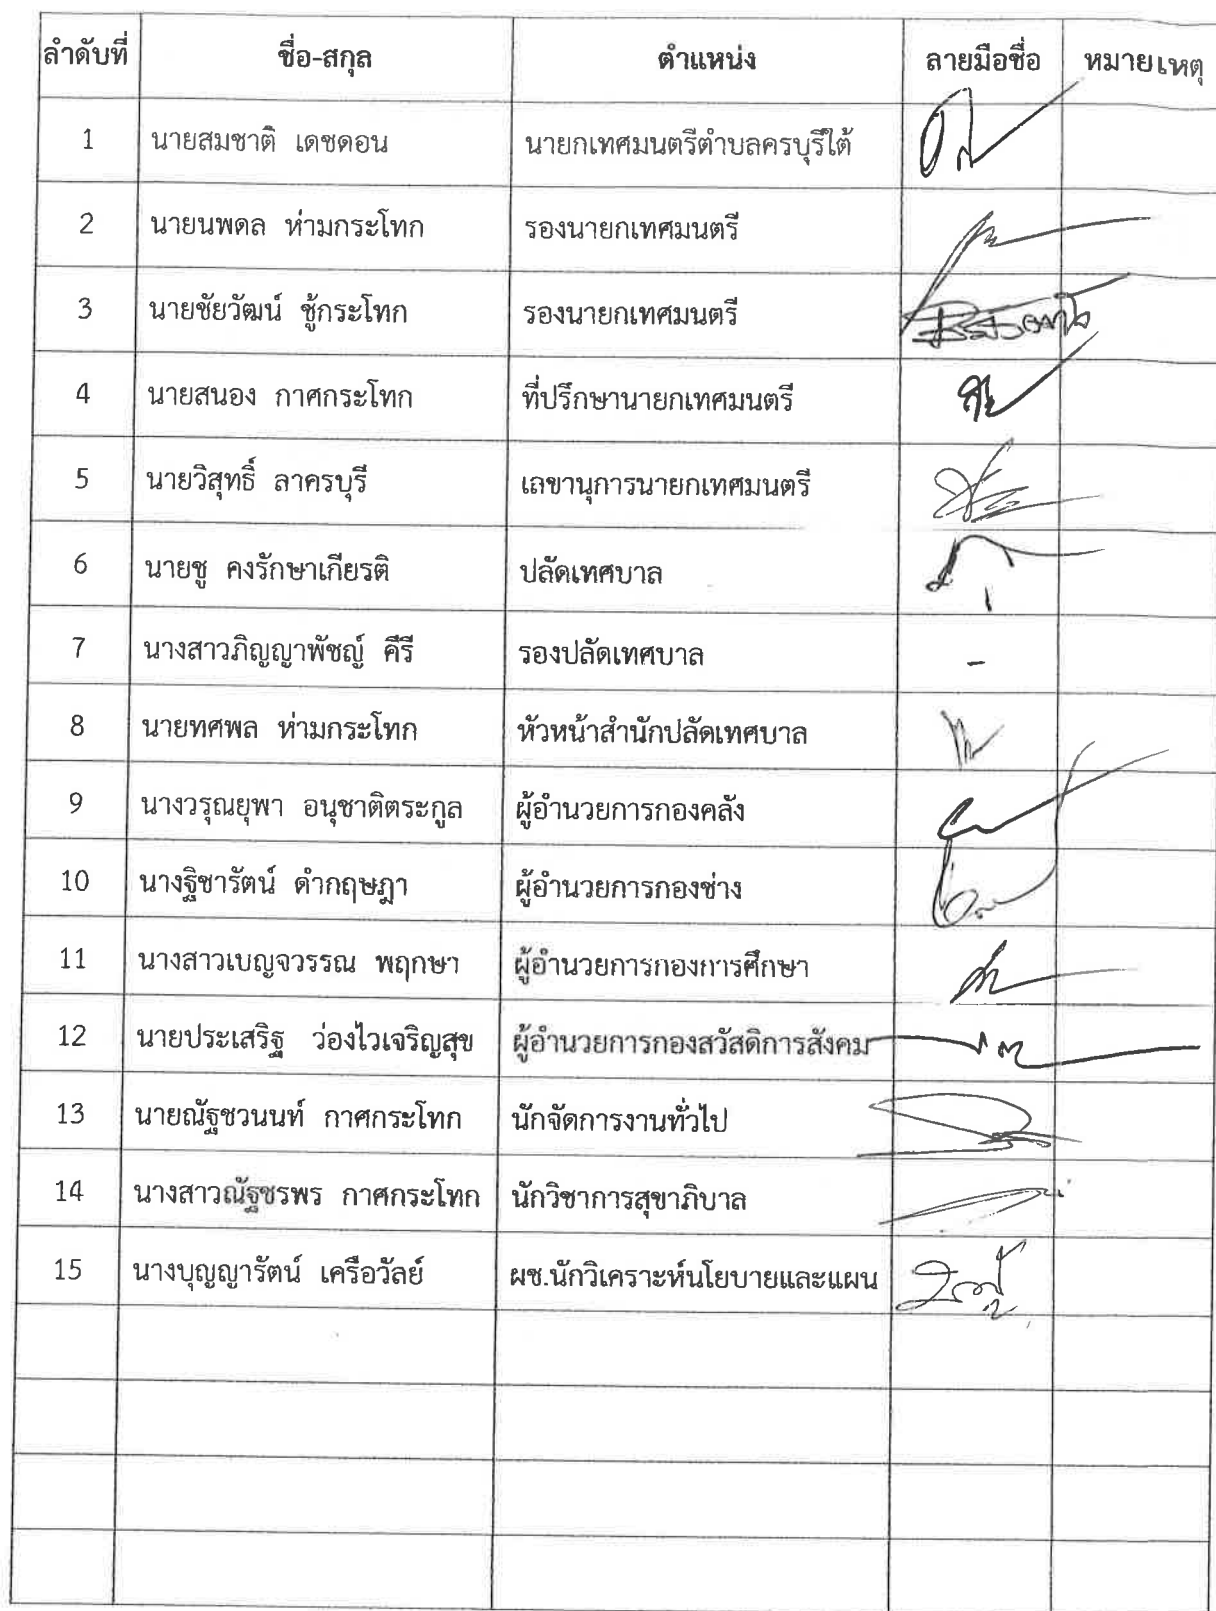 ลำดับที่ ชื่อ-สกุล ตำแหน่ง ลายมือชื่อ หมายเหตุ
1 นายสมชาติ เดชดอน นายกเทศมนตรีตำบลครบุรีใต้
2 นายนพดล ห่ามกระโทก รองนายกเทศมนตรี
3 นายชัยวัฒน์ ชู้กระโทก รองนายกเทศมนตรี
4 นายสนอง กาศกระโทก ที่ปรึกษานายกเทศมนตรี
5 นายวิสุทธิ์ ลาครบุรี เลขานุการนายกเทศมนตรี
6 นายชู คงรักษาเกียรติ ปลัดเทศบาล
7 นางสาวภิญญาพัชญ์ คีรี รองปลัดเทศบาล -
8 นายทศพล ห่ามกระโทก หัวหน้าสำนักปลัดเทศบาล
9 นางวรุณยุพา อนุชาติตระกูล ผู้อำนวยการกองคลัง
10 นางฐิชารัตน์ ดำกฤษฎา ผู้อำนวยการกองช่าง
11 นางสาวเบญจวรรณ พฤกษา ผู้อำนวยการกองการศึกษา
12 นายประเสริฐ ว่องไวเจริญสุข ผู้อำนวยการกองสวัสดิการสังคม
13 นายณัฐชวนนท์ กาศกระโทก นักจัดการงานทั่วไป
14 นางสาวณัฐชรพร กาศกระโทก นักวิชาการสุขาภิบาล
15 นางบุญญารัตน์ เครือวัลย์ ผช.นักวิเคราะห์นโยบายและแผน